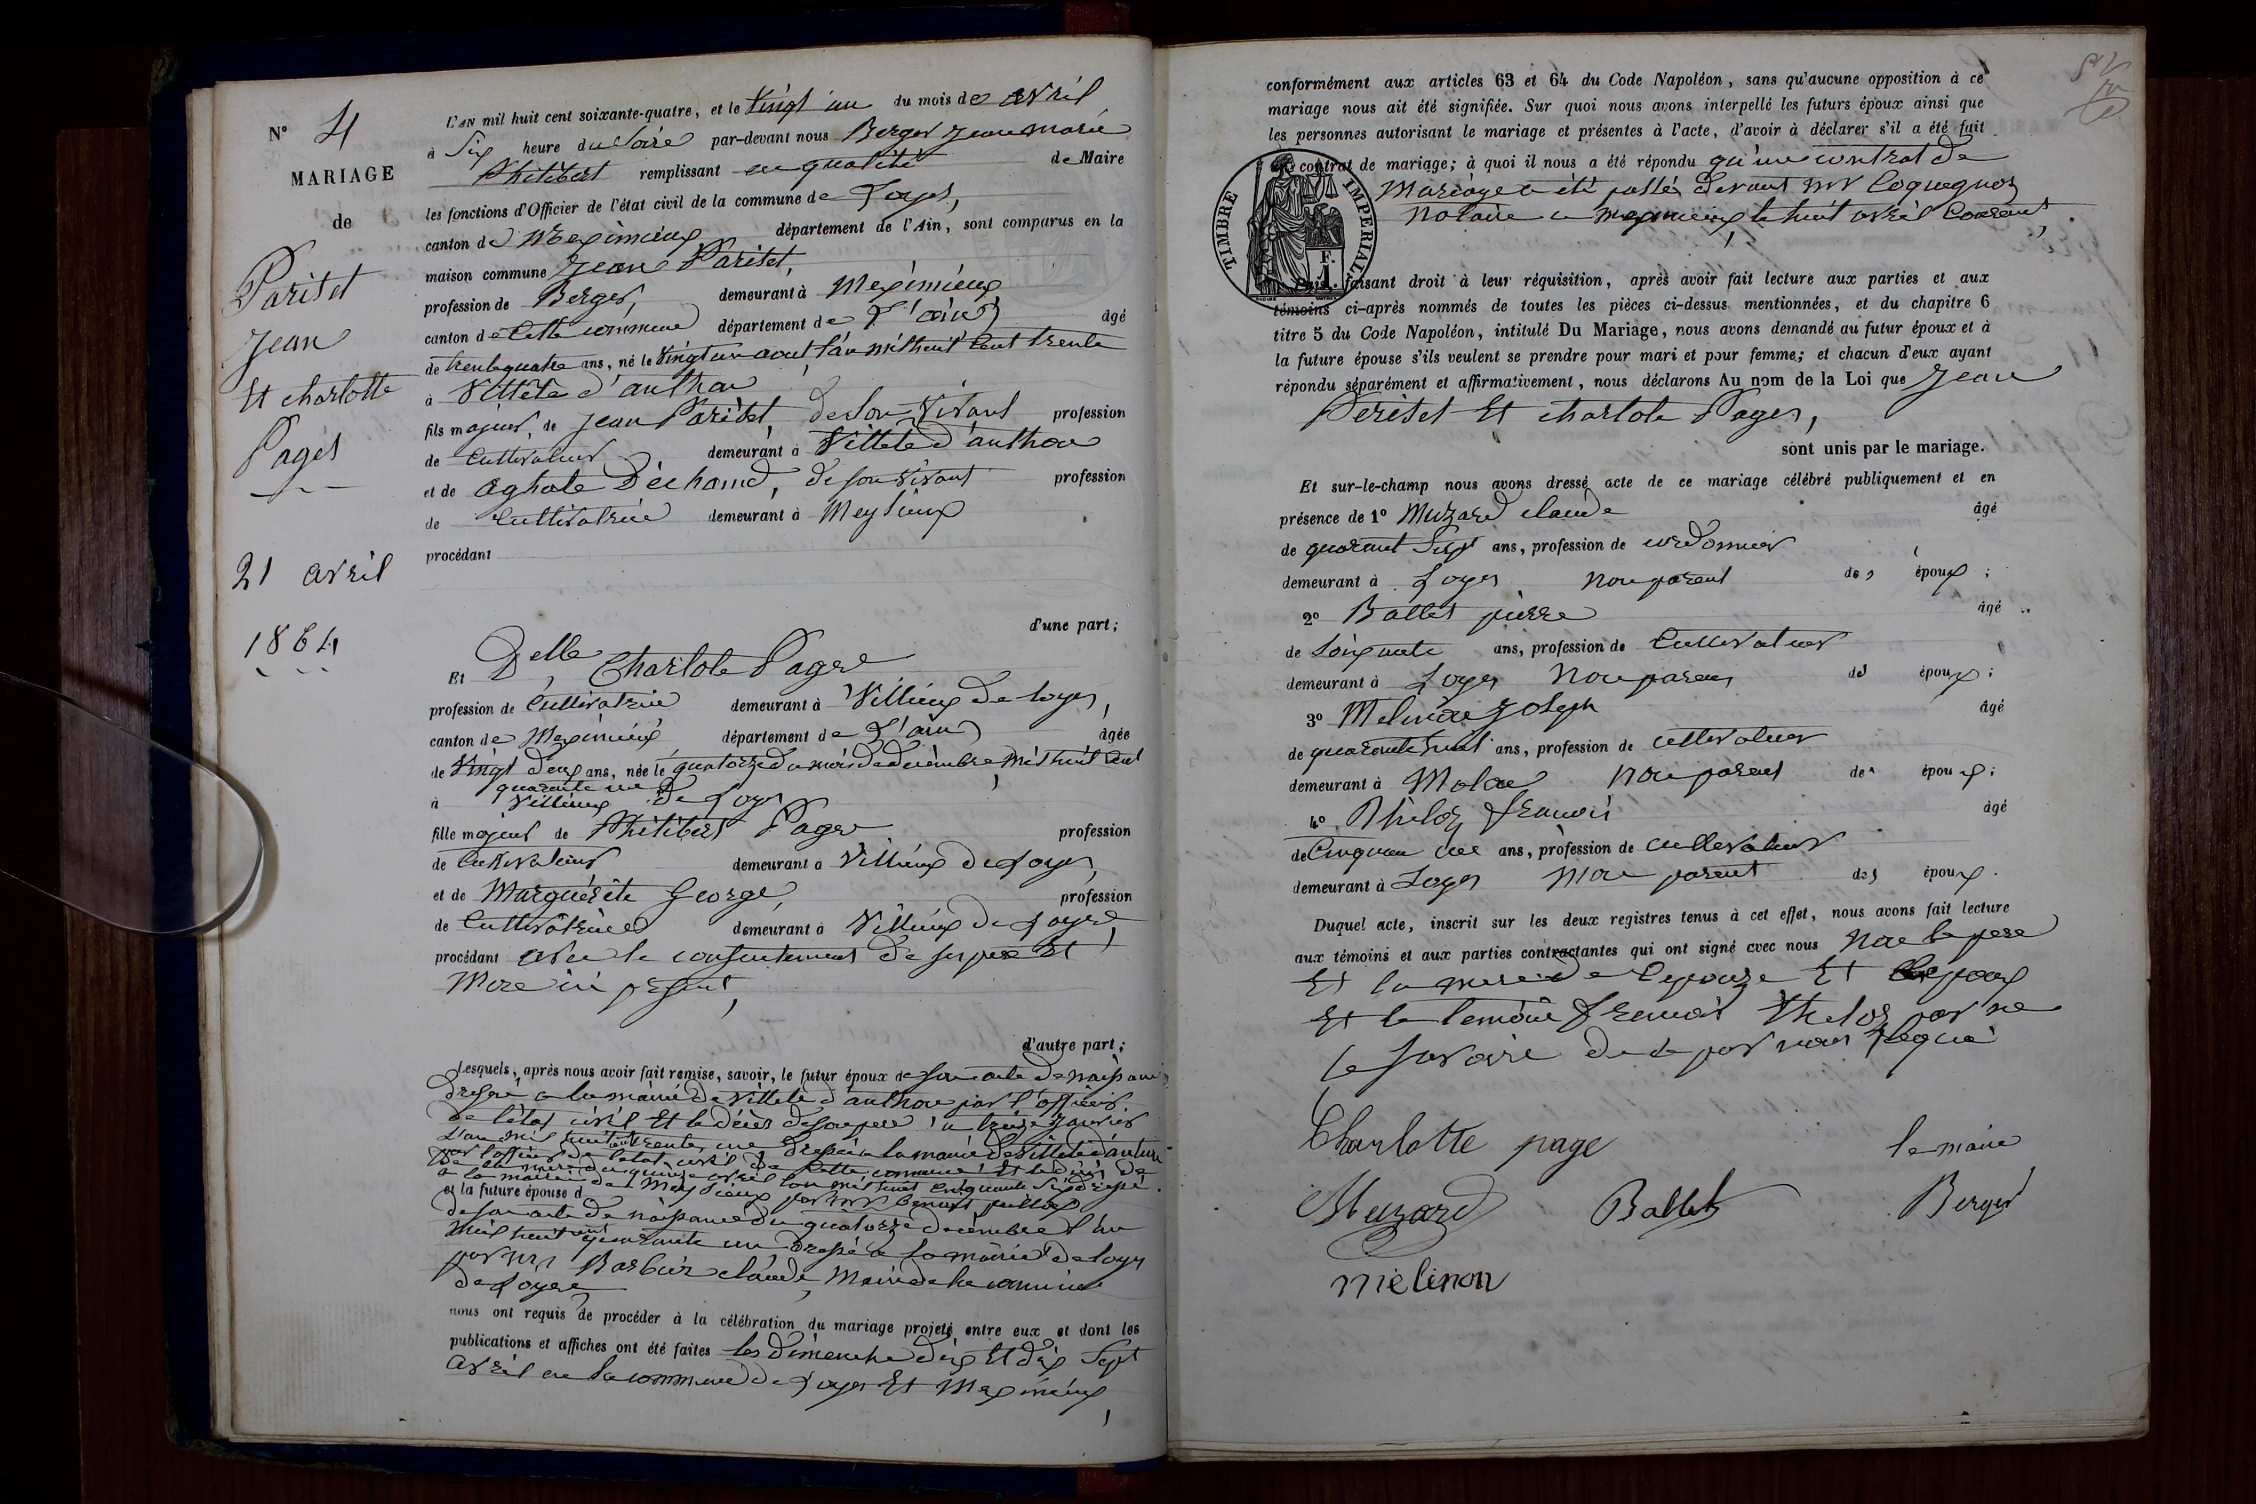 N° 4
MARIAGE
de
Paritet
Jean
Et charlotte
Pages
21 avril
1864
L'AN mil huit cent soixante-quatre, et le Vingt un du mois de avril
à Six heure du Soire par-devant nous Berger Jean Marie
Philibert remplissant en qualité de Maire
les fonctions d'Officier de l'état civil de la commune de Loyes,
canton de Meximieux département de l'Ain, sont comparus en la
maison commune Jean Paritet,
profession de Berger, demeurant à Meximieux
canton de Cette commune département de L'ain âgé
de trente quatre ans, né le Vingt un aout l'an mil huit Cent trente
à Villete d'anthon
fils majeur de Jean Paritet, de son Vivant profession
de Cultivateur demeurant à Villete d'anthon
et de aghate Déchamd, de son Vivant profession
de Cultivatrice demeurant à Meyzieux
procédant
d'une part;
Et Delle Charlote Pages
profession de Cultivatrice demeurant à Villieux de Loyes,
canton de Meximieux département de L'ain âgée
de Vingt deux ans, née le quatorze du mois de decembre mil huit Cent
quarante un
à Villieux de Loyes
fille majeur de Philibert Pages profession
de Cultivateur demeurant à Villieux de Loyes,
et de Marguérite George, profession
de Cultivatrice demeurant à Villieux de Loyes,
procédant avec le consentement de ses pere Et
Mere ici présent,
d'autre part;
Lesquels, après nous avoir fait remise, savoir, le futur époux de son acte de naissance
dressé a la mairie de Villete d'anthon par l'officier
de l'état civil Et le décès de son pere du treize Janvier
L'an mil huit cent trente une dressé a la mairie de Villete d'anthon
par l'officier de l'etat civil de cette commune, Et le décès de
de la mere du quinze avril l'an mil huit cinquante Six dressé
a la mairie de Meyzieux par
et la future épouse d
de son acte de naissance du quatorze decembre l'an
mil huit cent quarante un dressé a la mairie de Loyes
par Mr Barbier claude, Maire de la commune
de Loyes
nous ont requis de procéder à la célébration du mariage projeté entre eux et dont les
publications et affiches ont été faites les dimenche dix Et dix Sept
avril en la commune de Loyes Et Meximieux,
conformément aux articles 63 et 64 du Code Napoléon, sans qu'aucune opposition à ce
mariage nous ait été signifiée. Sur quoi nous avons interpellé les futurs époux ainsi que
les personnes autorisant le mariage et présentes à l'acte, d'avoir à déclarer s'il a été fait
contrat de mariage; à quoi il nous a été répondu qu'un contrat de
Mariage a été passé devant Mr Coquegnoz
Notaire a Meximieux le huit avril Courant,
TIMBRE IMPÉRIAL.
1 F.
faisant droit à leur réquisition, après avoir fait lecture aux parties et aux
témoins ci-après nommés de toutes les pièces ci-dessus mentionnées, et du chapitre 6
titre 5 du Code Napoléon, intitulé Du Mariage, nous avons demandé au futur époux et à
la future épouse s'ils veulent se prendre pour mari et pour femme; et chacun d'eux ayant
répondu séparément et affirmativement, nous déclarons Au nom de la Loi que Jean
Peritet Et charlote Pages,
sont unis par le mariage.
Et sur-le-champ nous avons dressé acte de ce mariage célébré publiquement et en
présence de 1° Muzard claude âgé
de quarant Sept ans, profession de cordonnier
demeurant à Loyes non parent des époux;
2° Ballet pierre âgé
de Soixante ans, profession de Cultivateur
demeurant à Loyes Non parent des époux;
3° Melinon Joseph âgé
de quarante huit ans, profession de cultivateur
demeurant à Molon Non parent des époux;
4° Theloz françois âgé
de Cinquan une ans, profession de cultivateur
demeurant à Loyes Non parent des époux.
Duquel acte, inscrit sur les deux registres tenus à cet effet, nous avons fait lecture
aux témoins et aux parties contractantes qui ont signé avec nous Non le pere
Et la mere de l'epouze Et Lepoux
Et le temoin françois Theloz par ne
le Savoire de ce par nous requis
Charlotte page
le maire
Muzard Ballet Berger
mélinon